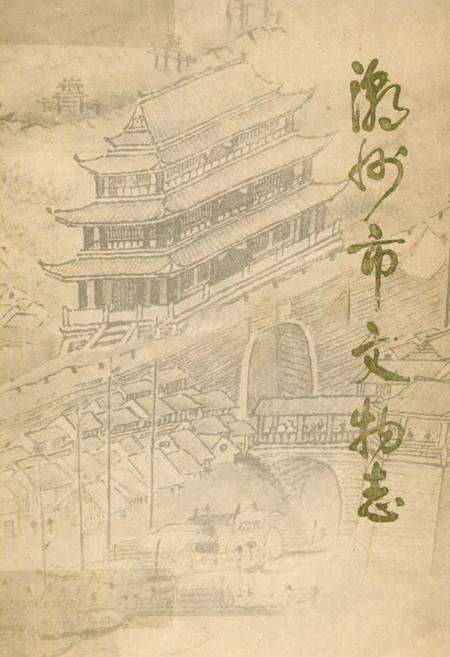 潮州市文物志